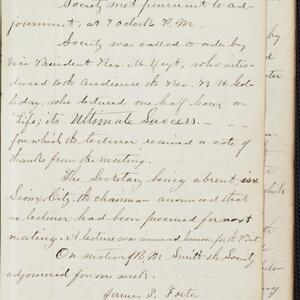 Society met pursuant to ad-
journment, at 7 o'clock P.M.
Society was called to order by
Vice President Rev. M. who intro-
duced to the Audience the Rev. B. H.
who lectured one half hour on
"Life; its Ultimate Success.
for which the lecturer received a vote of
thanks from the meeting.
The Secretary being absent, in
Sioux City, the chairman announced that
no lecturer had been procured for next
meeting. A lecture was
On motion of M. Smith the Society
adjourned for one week.
James S. Foster